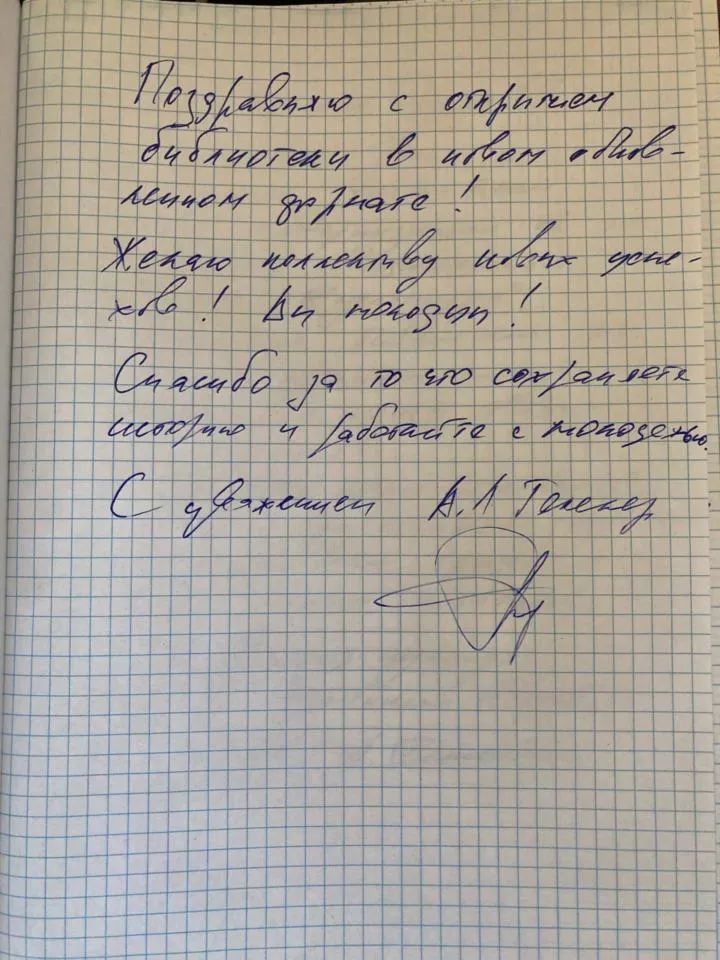 Поздравляю с открытием
библиотеки в новом обнов-
ленном формате!
Желаю коллективу новых успе-
хов! Вы молодцы!
Спасибо за то что сохраняете
историю и работаете с молодежью.
С уважением А.Л